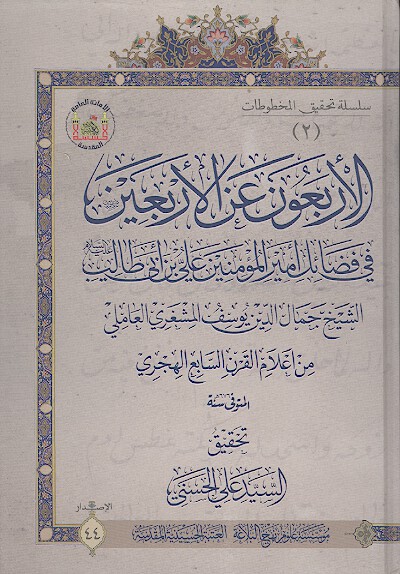 سلسلة تحقيق المخطوطات
(٢)
الأمانة العامة
المقدسة
الأربعون عن الأربعين
في فضائل أمير المؤمنين علي بن أبي طالب
الشيخ جمال الدين يوسف المشغري العاملي
من أعلام القرن السابع الهجري
المتوفى سنة
تحقيق
السيد علي الحسني
الإصدار
٤٤
مؤسسة علوم نهج البلاغة
العتبة الحسينية المقدسة